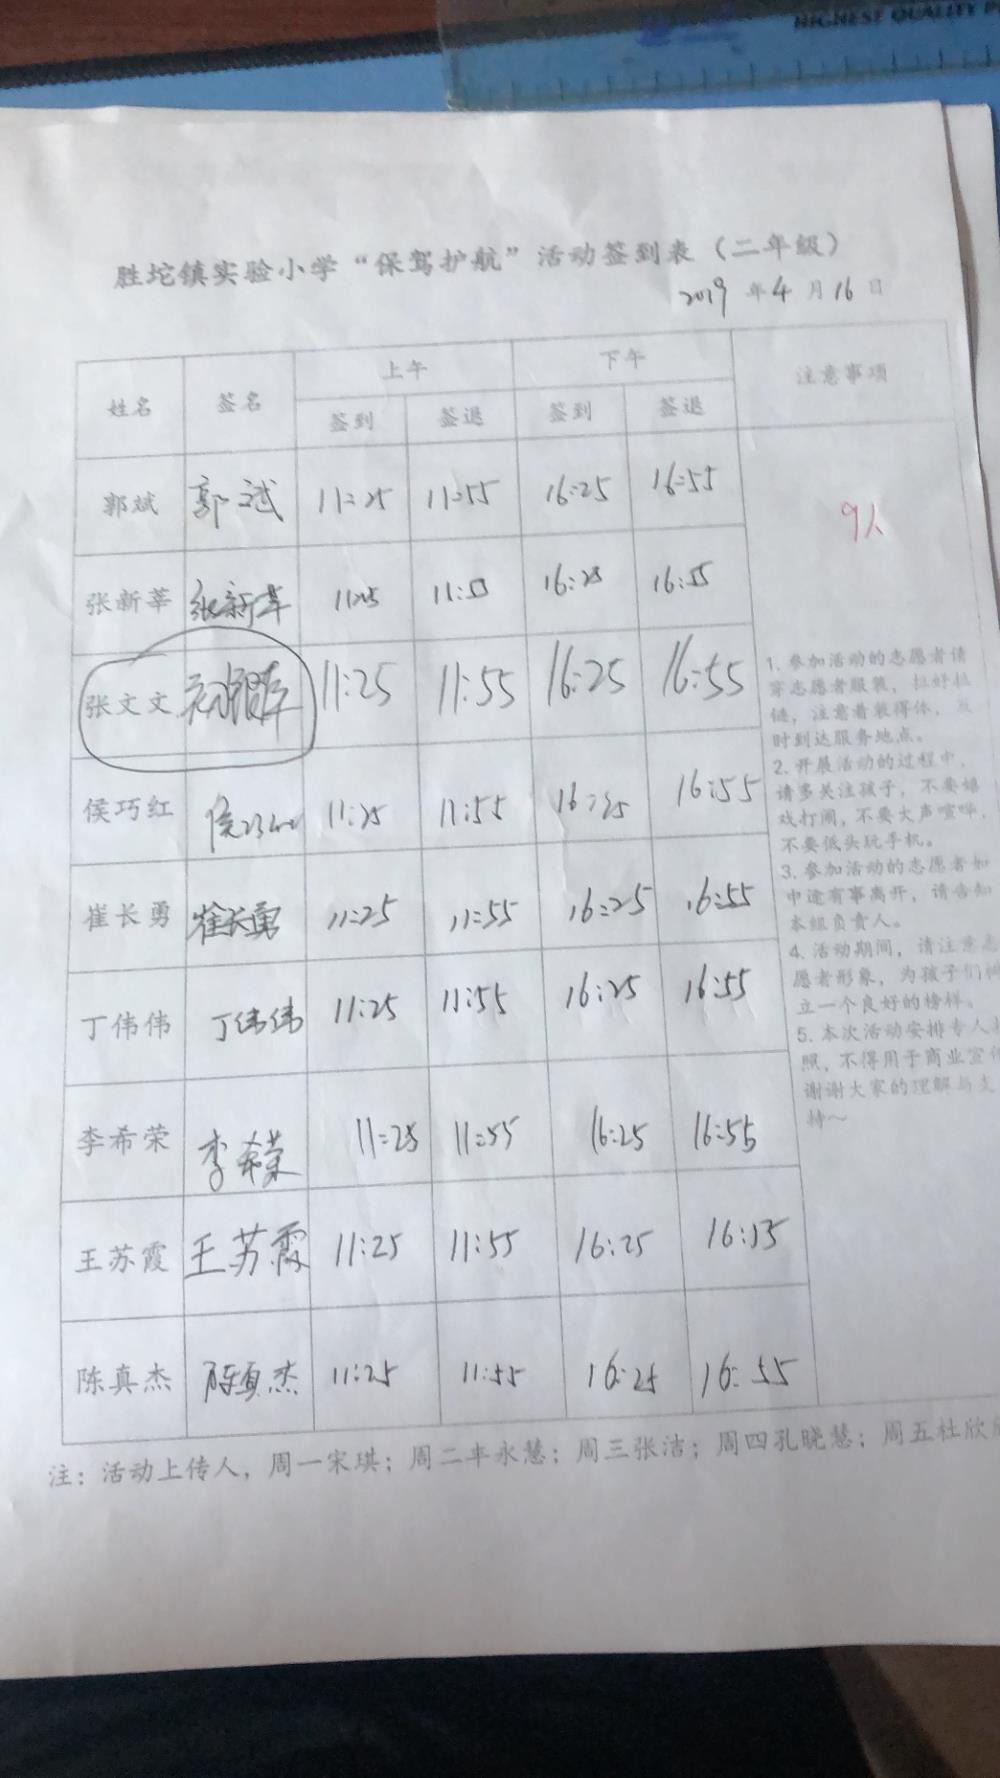 HIGHEST QUALITY
胜坨镇实验小学“保驾护航”活动签到表（二年级）
2019 年 4 月 16 日
姓名 签名 上午 下午 注意事项
签到 签退 签到 签退
郭斌 郭斌 11:25 11:55 16:25 16:55
9人
张新莘 张新莘 11:25 11:55 16:25 16:55
张文文 11:25 11:55 16:25 16:55
侯巧红 侯巧红 11:25 11:55 16:25 16:55
崔长勇 崔长勇 11:25 11:55 16:25 16:55
丁伟伟 丁伟伟 11:25 11:55 16:25 16:55
李希荣 李希荣 11:25 11:55 16:25 16:55
王苏霞 王苏霞 11:25 11:55 16:25 16:55
陈真杰 陈真杰 11:25 11:55 16:25 16:55
1. 参加活动的志愿者请
穿志愿者服装，拉好拉
链，注意着装得体，及
时到达服务地点。
2. 开展活动的过程中，
请多关注孩子，不要嬉
戏打闹，不要大声喧哗，
不要低头玩手机。
3. 参加活动的志愿者如
中途有事离开，请告知
本组负责人。
4. 活动期间，请注意志
愿者形象，为孩子们树
立一个良好的榜样。
5. 本次活动安排专人拍
照，不得用于商业宣传
谢谢大家的理解与支
持～
注：活动上传人，周一宋琪；周二丰永慧；周三张洁；周四孔晓慧；周五杜欣